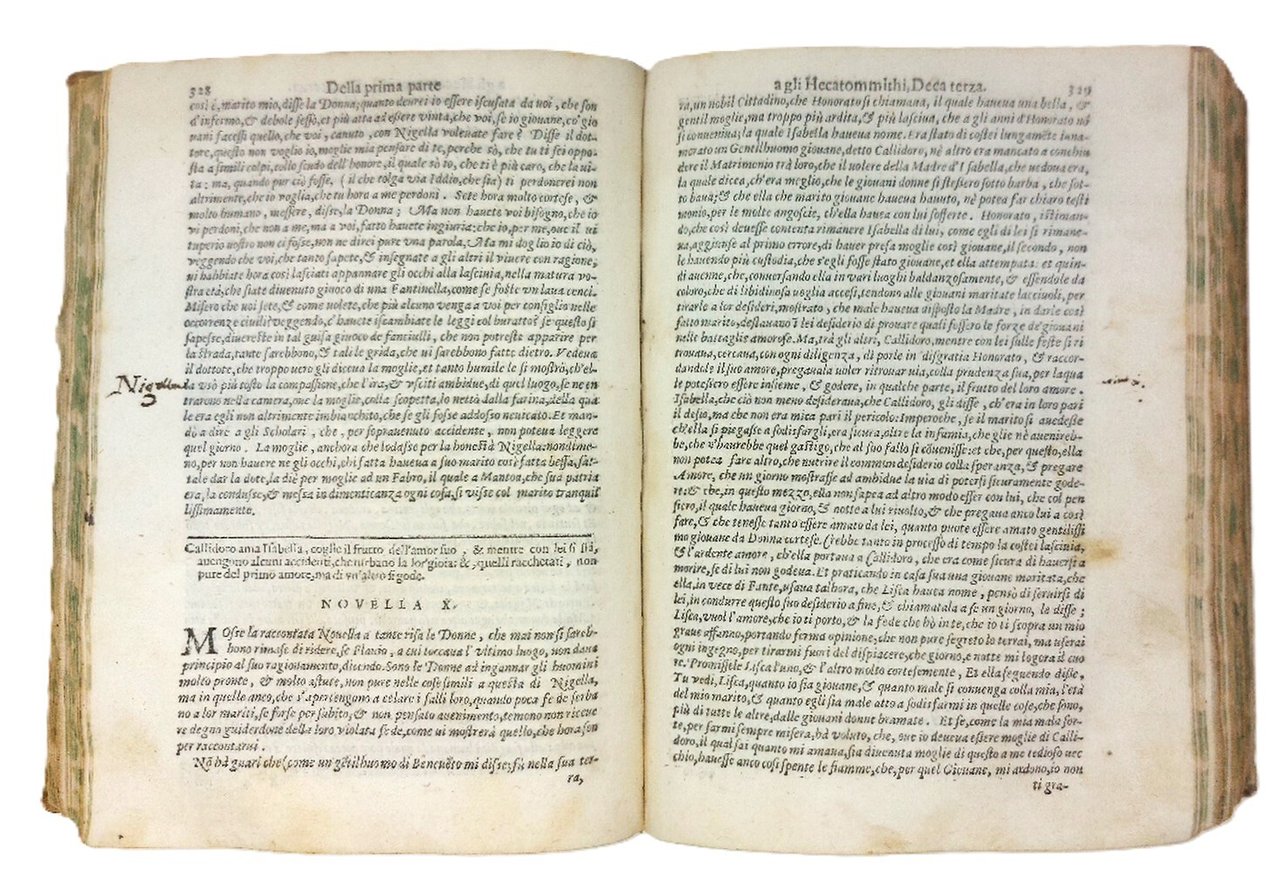 328 Della prima parte
così è, marito mio, disse la Donna; quanto deurei io essere iscusata da uoi, che son
d'infermo, & debole sesso, et più atta ad essere vinta, che voi, se io giouane, co' gio
uani facessi quello, che voi, canuto, con Nigella voleuate fare? Disse il dot-
tore, questo non voglio io, moglie mia pensare di te, perche sò, che tu ti sei oppo-
sta a simili colpi, collo scudo dell'honore, il quale sò io, che ti è più caro, che la ui-
ta: ma, quando pur ciò fosse, (il che tolga via Iddio, che sia) ti perdonerei non
altrimente, che io voglia, che tu hora a me perdoni. Sete hora molto cortese, &
molto humano, messere, disse, la Donna; Ma non hauete voi bisogno, che io
vi perdoni, che non a me, ma a voi, fatto hauete ingiuria: che io, per me, oue il ui
tuperio uostro non ci fosse, non ne direi pure vna parola, Ma mi doglio io di ciò,
veggendo che voi, che tanto sapete, & insegnate a gli altri il viuere con ragione,
ui habbiate hora così lasciati appannare gli occhi alla lasciuia, nella matura vo-
stra età, che siate diuenuto giuoco di una Fantinella, come se foste vn laua cenci.
Misero che uoi sete, & come uolete, che più alcuno venga a voi per consiglio nelle
occorrenze ciuili? veggendo, c'hauete iscambiate le leggi col buratto? se questo si
sapesse, diuereste in tal guisa giuoco de fanciulli, che non potreste apparire per
la strada, tante sarebbono, & tali le grida, che ui sarebbono fatte dietro. Vedeua
il dottore, che troppo uero gli diceua la moglie, et tanto humile le si mostrò, ch'el-
Nigella
la vsò più tosto la compassione, che l'ira, & vsciti ambidue, di quel luogo, se ne en
trarono nella camera, me la moglie, colla scopetta, lo nettò dalla farina, della qua
le era egli non altrimente imbiancato, che se gli fosse addosso neuicato. Et man-
dò a dire a gli Scholari, che, per soprauenuto accidente, non poteua leggere
quel giorno. La moglie, anchora che lodasse per la honestà Nigella: nondime-
no, per non hauere ne gli occhi, chi fatta haueua a suo marito così fatta beffa, fat-
tale dar la dote, la diè per moglie ad un Fabro, il quale a Mantoa, che sua patria
era, la condusse; & messa in dimenticanza ogni cosa, si visse col marito tranquil
lissimamente.
Callidoro ama Isabella, coglie il frutto dell'amor suo, & mentre con lei si stà,
auengono alcuni accidenti, che turbano la lor gioia: &, quelli racchetati, non
pure del primo amore, ma di vn'altro si gode.
NOVELLA X.
MOsse la raccontata Nouella a tante risa le Donne, che mai non si sareb-
bono rimase di ridere, se Flauio, a cui toccaua l'vltimo luogo, non daua
principio al suo ragionamento, dicendo. Sono le Donne ad ingannar gli huomini
molto pronte, & molto astute, non pure nelle cose simili a questa di Nigella,
ma in quelle anco, che s'apertengono a celare i falli loro, quando poca fede serba
no a lor mariti, se forse per subito, & non pensato auenimento, temono non riceue
re degna guiderdone della loro violata fede, come ui mostrerà quello, che hora son
per raccontarui.
Nō hà guari che (come un gētilhuomo di Beneuēto mi disse) fù, nella sua ter-
ra,
a gli Hecatommithi, Deca terza. 329
ra, un nobil Cittadino, che Honorato si chiamaua, il quale haueua una bella, &
gentil moglie, ma troppo più ardita, & più lasciua, che a gli anni d'Honorato nō
si conueniua; la quale Isabella haueua nome. Era stato di costei lungamēte inna-
morato un Gentilhuomo giouane, detto Callidoro, nè altro era mancato a conchiu
dere il Matrimonio trà loro, che il uolere della Madre d'Isabella, che uedoua era,
la quale dicea, ch'era meglio, che le giouani donne si stessero sotto barba, che sot-
to baua; & che ella che marito giouane haueua hauuto, nè potea far chiaro testi
monio, per le molte angoscie, ch'ella hauea con lui sofferte. Honorato, istiman-
do, che così deuesse contenta rimanere Isabella di lui, come egli di lei si rimane-
ua, aggiunse al primo errore, di hauer presa moglie così giouane, il secondo, non
le hauendo più custodia, che s'egli fosse stato giouane, et ella attempata: et quin-
di auenne, che, conuersando ella in vari luoghi baldanzosamente, & essendole da
coloro, che di libidinosa uoglia accesi, tendono alle giouani maritate lacciuoli, per
tirarle a lor desideri, mostrato, che male haueua disposto la Madre, in darle così
fatto marito, destauano ī lei desiderio di prouare quali fossero le forze de' giouani
nelle battaglie amorose. Ma, trà gli altri, Callidoro, mentre con lei sulle feste si ri
trouaua, cercaua, con ogni diligenza, di porle in disgratia Honorato, & raccor-
dandole il suo amore, pregauala uoler ritrouar uia, colla prudenza sua, per laqua
le potessero essere insieme, & godere, in qualche parte, il frutto del loro amore.
Isabella, che ciò non meno desideraua, che Callidoro, gli disse, ch'era in loro pari
il desio, ma che non era mica pari il pericolo: Imperoche, se il marito si auedesse
ch'ella si piegasse a sodisfargli, era sicura, oltre la infamia, che glie nè auenireb-
be, che v'haurebbe quel gastigo, che al suo fallo si cōuenisse: et che, per questo, ella
non potea fare altro, che nutrire il commun desiderio colla speranza, & pregare
Amore, che un giorno mostrasse ad ambidue la uia di potersi sicuramente gode-
re: & che, in questo mezzo, ella non sapea ad altro modo esser con lui, che col pen
siero, il quale haueua giorno, & notte a lui riuolto, & che pregaua anco lui a così
fare, & che tenesse tanto essere amato da lei, quanto puote essere amato gentilissi
mo giouane da Donna cortese. Crebbe tanto in processo di tempo la costei lasciuia,
& l'ardente amore, ch'ella portaua a Callidoro, che era come sicura di hauersi a
morire, se di lui non godeua. Et praticando in casa sua una giouane maritata, che
ella, in vece di Fante, usaua talhora, che Lisca hauea nome, pensò di seruirsi di
lei, in condurre questo suo desiderio a fine, & chiamatala a se un giorno, le disse;
Lisca, vuol l'amore, che io ti porto, & la fede che hò in te, che io ti scopra un mio
graue affanno, portando ferma opinione, che non pure segreto lo terrai, ma userai
ogni ingegno, per tirarmi fuori del dispiacere, che giorno, e notte mi logora il cuo
re. Promissele Lisca l'uno, & l'altro molto cortesemente, Et ella seguendo disse,
Tu vedi, Lisca, quanto io sia giouane, & quanto male si conuenga colla mia, l'età
del mio marito, & quanto egli sia male atto a sodisfarmi in quelle cose, che sono,
più di tutte le altre, dalle giouani donne bramate. Et se, come la mia mala sor-
te, per farmi sempre misera, hà voluto, che, oue io deueua essere moglie di Calli-
doro, il qual sai quanto mi amaua, sia diuenuta moglie di questo a me tedioso uec
chio, hauesse anco così spente le fiamme, che, per quel Giouane, mi ardono, io non
ti gra-